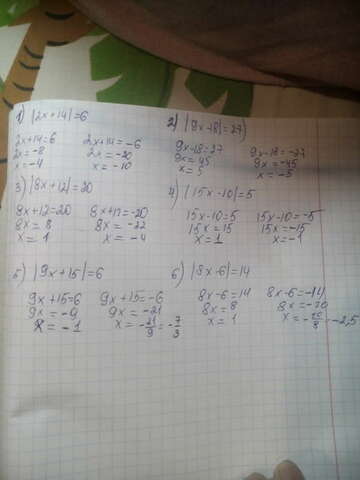 1) |2x+14|=6
2x+14=6 2x+14=-6
2x=-8 2x=-20
x=-4 x=-10
2) |9x-18|=27)
9x-18=27 9x-18=-27
9x=45 9x=-45
x=5 x=-5
3) |8x+12|=20
8x+12=20 8x+12=-20
8x=8 8x=-32
x=1 x=-4
4) |15x-10|=5
15x-10=5 15x-10=-5
15x=15 15x=-15
x=1 x=-1
5) |9x+15|=6
9x+15=6 9x+15=-6
9x=-9 9x=-21
x=-1 x=-21/9=-7/3
6) |8x-6|=14
8x-6=14 8x-6=-14
8x=8 8x=-20
x=1 x=-20/8=-2,5